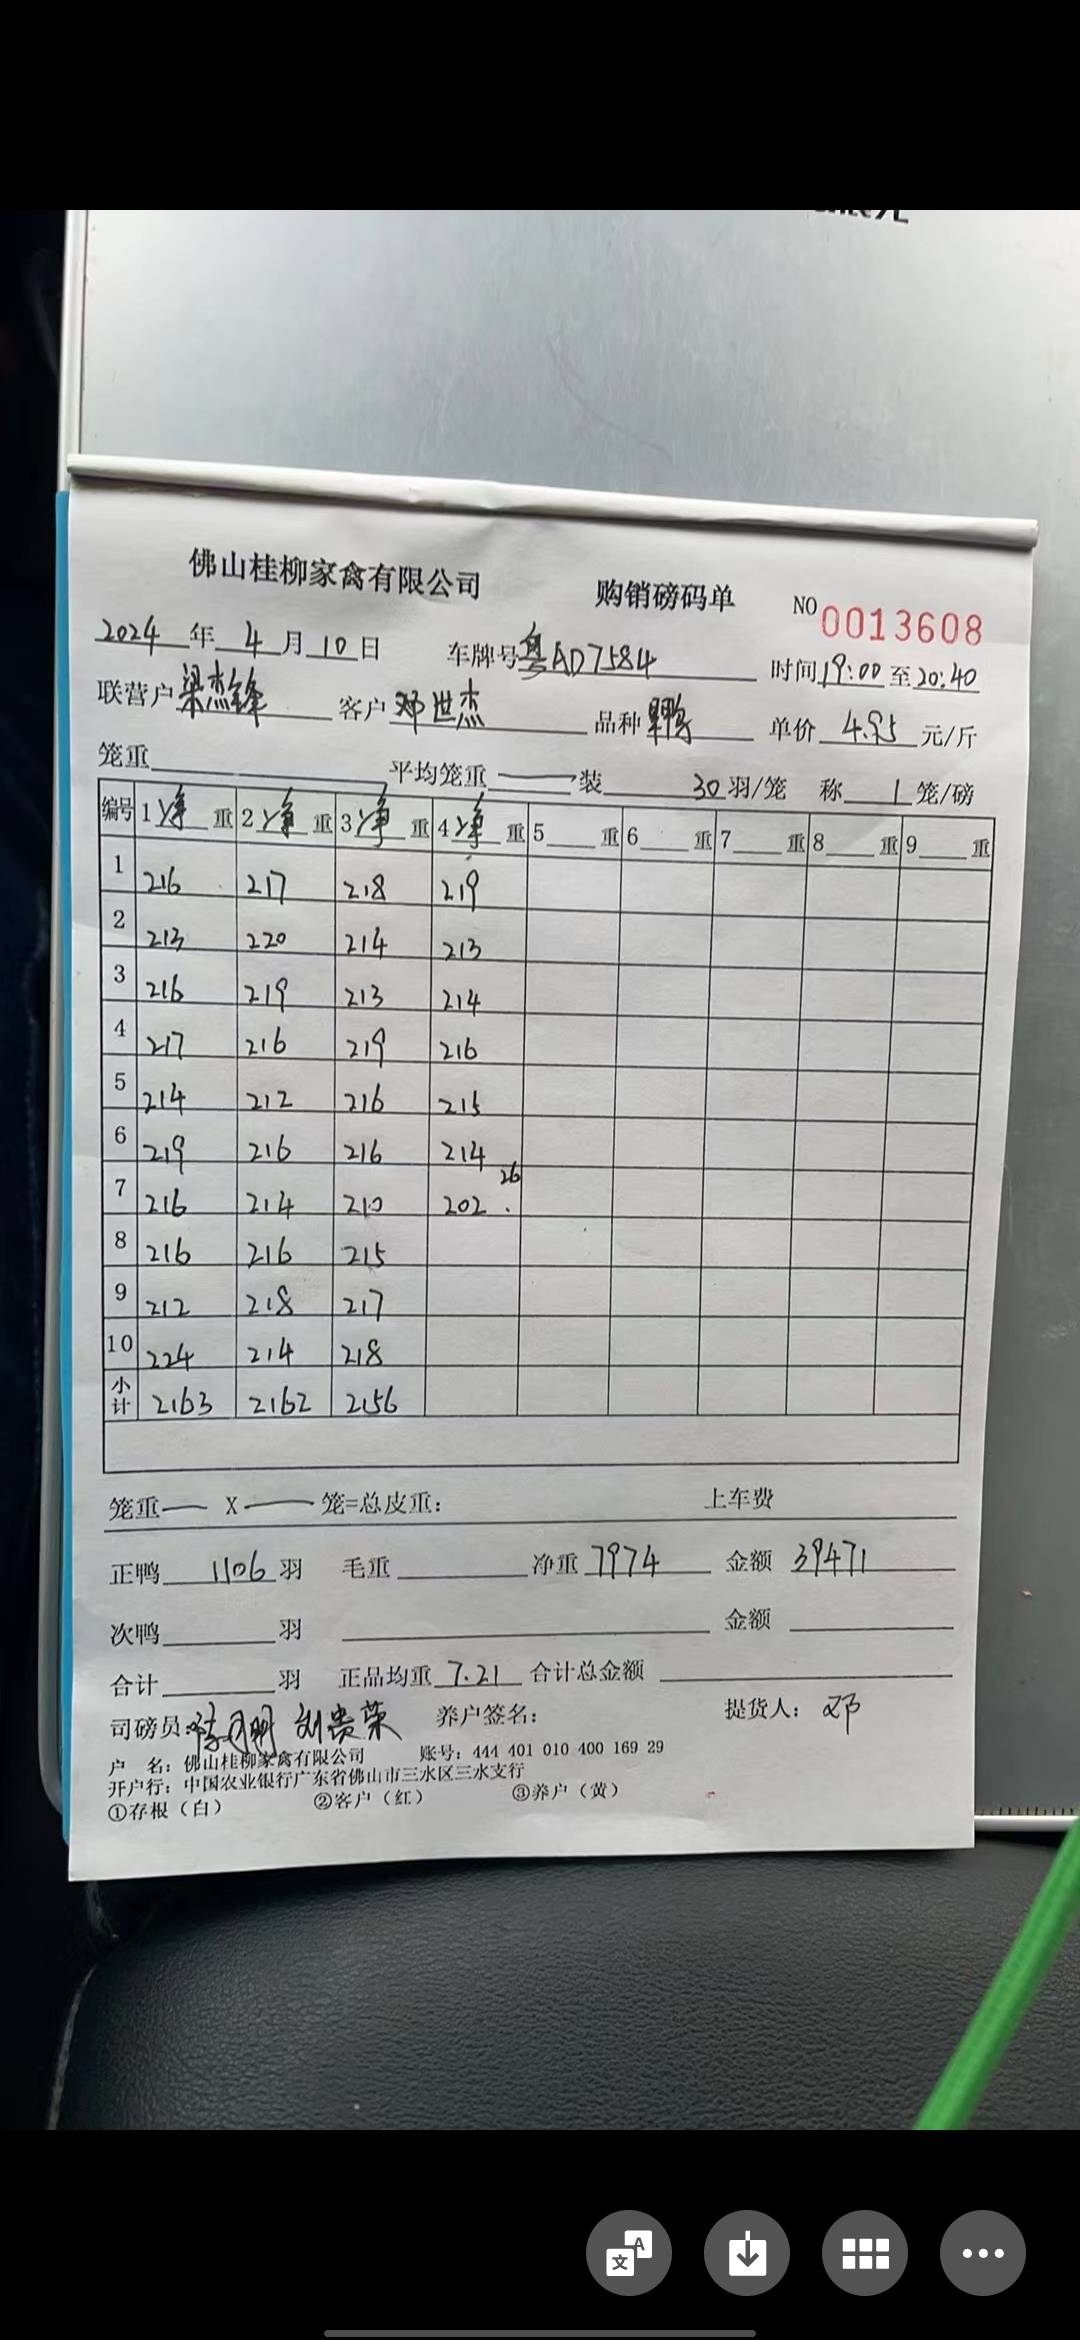 佛山桂柳家禽有限公司 购销磅码单 NO 0013608
2024 年 4 月 10 日 车牌号 粤AD7584 时间 19:00 至 20:40
联营户 梁杰锋 客户 邓世杰 品种 单价 4.95 元/斤
笼重 平均笼重 装 30 羽/笼 称 1 笼/磅
编号 1 净 重 2 净 重 3 净 重 4 净 重 5 重 6 重 7 重 8 重 9 重
1 216 217 218 219
2 213 220 214 213
3 216 219 213 214
4 217 216 219 216
5 214 212 216 215
6 219 216 216 214
7 216 214 210 202 26
8 216 216 215
9 212 218 217
10 224 214 218
小计 2163 2162 2156
笼重 — X — 笼=总皮重: 上车费
正鸭 1106 羽 毛重 净重 7974 金额 39471
次鸭 羽 金额
合计 羽 正品均重 7.21 合计总金额
司磅员: 刘贵荣 养户签名: 提货人: 邓
户 名: 佛山桂柳家禽有限公司 账号: 444 401 010 400 169 29
开户行: 中国农业银行广东省佛山市三水区三水支行
①存根（白） ②客户（红） ③养户（黄）